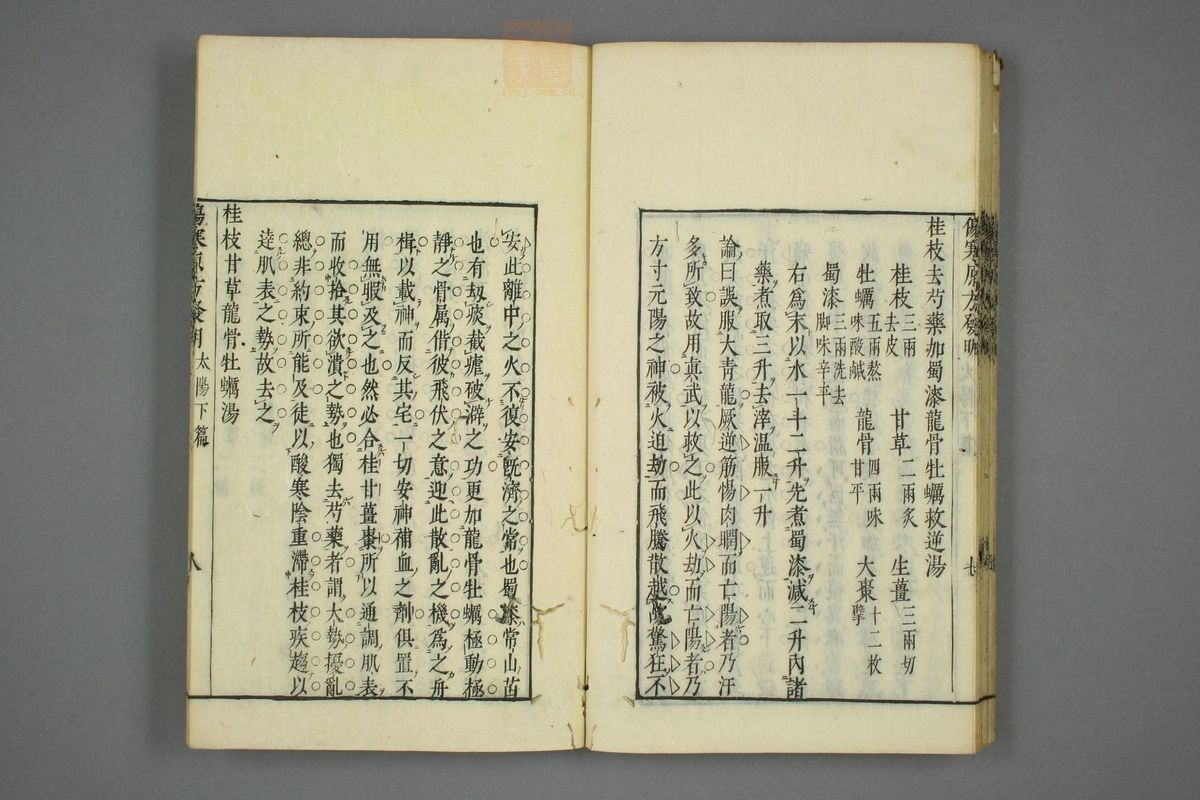 傷寒原方發明 太陽下篇 七
桂枝去芍藥加蜀漆龍骨牡蠣救逆湯
桂枝三兩去皮 甘草二兩炙 生薑三兩切
牡蠣五兩熬味酸鹹 龍骨四兩味甘平 大棗十二枚擘
蜀漆三兩洗去脚味辛平
右爲末以水一斗二升先煮蜀漆減二升內諸
藥煮取三升去滓温服一升
論曰誤服大青龍厥逆筋惕肉瞤而亡陽者乃汗
多所致故用真武以救之此以火劫而亡陽者乃
方寸元陽之神被火迫劫而飛騰散越驚狂不
安此離中之火不復安旣濟之常也蜀漆常山苗
也有刼痰截瘧破澼之功更加龍骨牡蠣極動極
靜之骨属借彼飛伏之意迎此散亂之機爲之舟
楫以載神而反其宅一切安神補血之劑俱置不
用無暇及之也然必合桂甘薑棗所以通調肌表
而收拾其欲潰之勢也獨去芍藥者謂大勢擾亂
總非約束所能及徒以酸寒陰重滯桂枝疾趨以
逵肌表之勢故去之
桂枝甘草龍骨牡蠣湯
傷寒原方發明 太陽下篇 八
zysj.com.cn